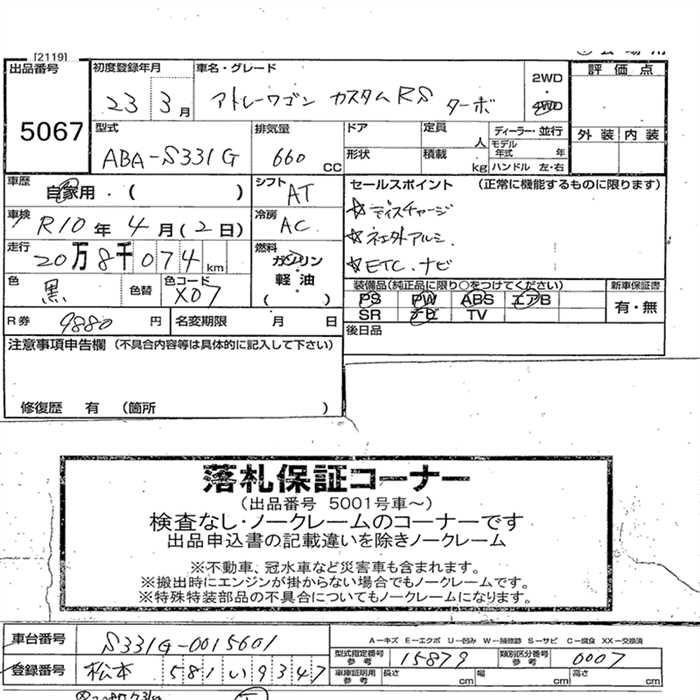 [2119]
出品番号
5067
初度登録年月
23 3月
車名・グレード
アトレーワゴン カスタムRS ターボ
2WD
・
4WD
評価点
外装 内装
型式
ABA-S331G
排気量
660 cc
ドア
形状
定員 人
積載 kg
ディーラー・並行
モデル年式 年
ハンドル 左・右
車歴
自家用・( )
シフト
AT
セールスポイント (正常に機能するものに限ります)
☆ディスチャージ
☆社外アルミ.
☆ETC.ナビ
車検
R10年4月(2日)
冷房
AC
走行
20万8千074km
燃料
ガソリン
軽油
( )
色
黒
色替
色コード
X07
装備品(純正品に限り○をつけてください)
PS PW ABS エアB
SR ナビ TV
新車保証書
有・無
R券 9880円
名変期限 月 日
後日品
注意事項申告欄 (不具合内容等は具体的に記入して下さい)
修復歴 有 (箇所 )
落札保証コーナー
(出品番号 5001号車~)
検査なし・ノークレームのコーナーです
出品申込書の記載違いを除きノークレーム
※不動車、冠水車など災害車も含まれます。
※搬出時にエンジンが掛からない場合でもノークレームです。
※特殊特装部品の不具合についてもノークレームになります。
車台番号 S331G-0015601
A-キズ E-エクボ U-凹み W-補修跡 S-サビ C-腐食 XX-交換済
型式指定番号 参考 15879
類別区分番号 参考 0007
登録番号 松本 581 い 9347
車庫証明用 参考 長さ cm 幅 cm 高さ cm